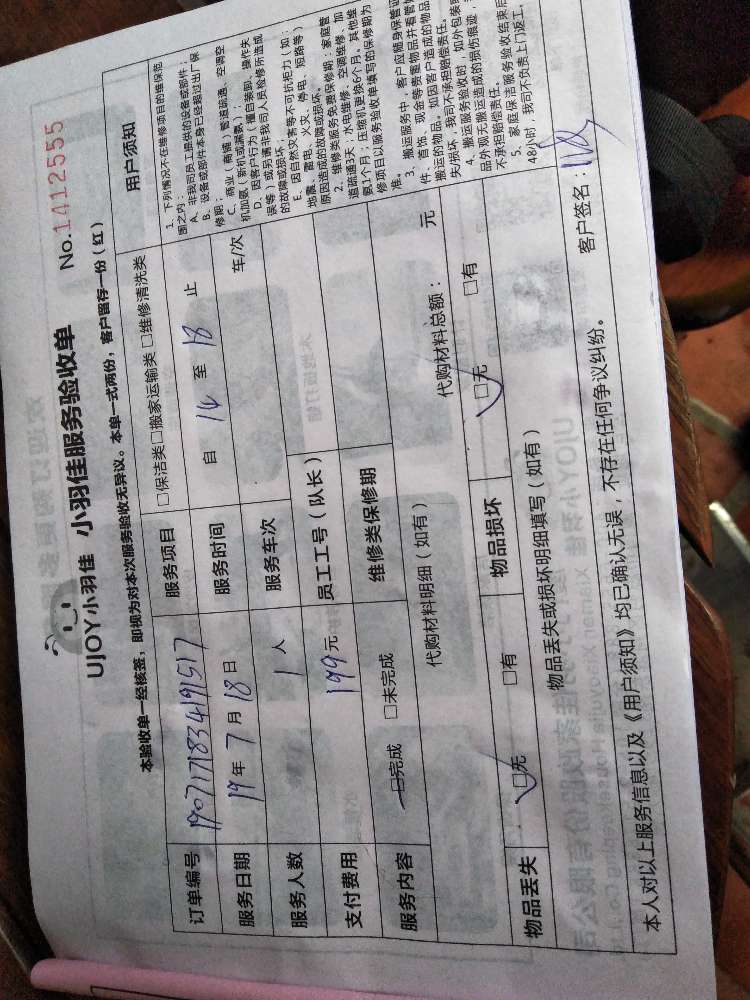 UJOY小羽佳 小羽佳服务验收单 No.1412555
本验收单一经核签，即视为对本次服务验收无异议。本单一式两份，客户留存一份（红）
订单编号 1907171834191517 服务项目 □保洁类□搬家运输类 □维修清洗类 用户须知
服务日期 19年7月18日 服务时间 自 14 至 18 止
服务人数 1人 服务车次 车/次
支付费用 199元 员工工号（队长）
服务内容 □完成 □未完成 维修类保修期
代购材料明细（如有） 代购材料总额： 元
物品丢失 □无 □有 物品损坏 □无 □有
物品丢失或损坏明细填写（如有）
1、下列情况不在维修项目的维保范
围之内：
A、非我司员工提供的设备或部件；
B、设备或部件本身已经超过出厂保
修期；
C、商业（商铺）管道疏通、空调空
机加氨（新机或漏氨）；
D、因客户行为（擅自装卸、操作失
误等）或另请非我司人员检修所造成
的故障或损坏。
E、因自然灾害等不可抗拒力（如：
地震、雷电、火灾、停电、短路等）
原因造成的故障或损坏。
2、维修类服务免费保修期：家庭管
道疏通3天；水电维修、空调维修、加
氨1个月；压缩机更换6个月。其他维
修项目以服务验收单填写的保修期为
准。
3、搬运服务中，客户应随身保管证
件、首饰、现金等贵重物品并看管好
搬运的物品。如因客户造成的物品
失/损坏，我司不承担赔偿责任。
4、搬运服务验收时，如外包装或
品外观无搬运造成的损伤痕迹，
不承担赔偿责任。
5、家庭保洁服务验收结束后
48小时，我司不负责上门返工。
本人对以上服务信息以及《用户须知》均已确认无误，不存在任何争议纠纷。 客户签名：